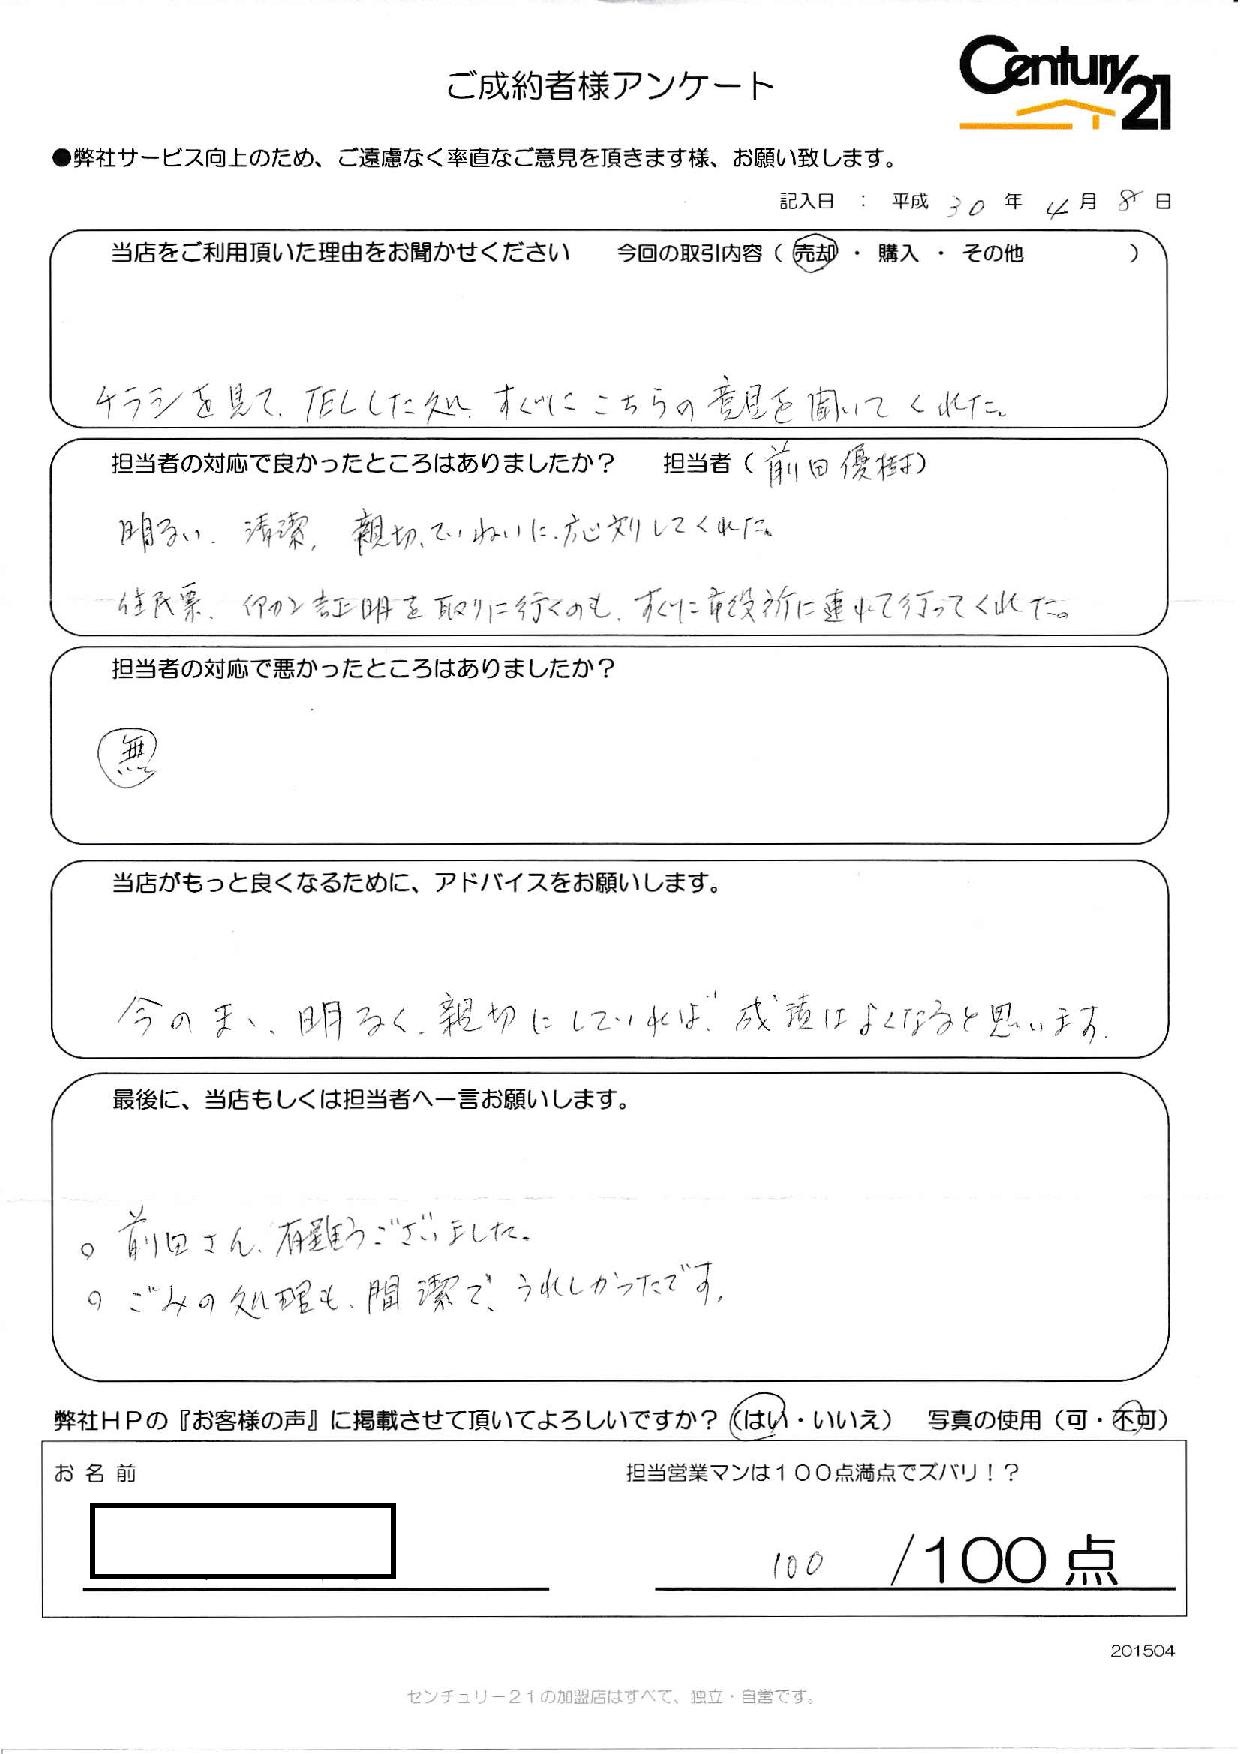 Century 21
ご成約者様アンケート
●弊社サービス向上のため、ご遠慮なく率直なご意見を頂きます様、お願い致します。
記入日 : 平成 30 年 4 月 8 日
当店をご利用頂いた理由をお聞かせください 今回の取引内容（ 売却 ・ 購入 ・ その他 ）
チラシを見て、TELした処、すぐにこちらの意見を聞いてくれた。
担当者の対応で良かったところはありましたか？ 担当者（ 前田優樹）
明るい、清潔、親切、ていねいに、応対してくれた。
住民票、印カン証明を取りに行くのも、すぐに市役所に連れて行ってくれた。
担当者の対応で悪かったところはありましたか？
無
当店がもっと良くなるために、アドバイスをお願いします。
今のまゝ、明るく、親切にしていれば、成績はよくなると思います。
最後に、当店もしくは担当者へ一言お願いします。
○ 前田さん、有難うございました。
○ ごみの処理も、間潔で、うれしかったです。
弊社ＨＰの『お客様の声』に掲載させて頂いてよろしいですか？（はい・いいえ） 写真の使用（可・不可）
お名前 担当営業マンは１００点満点でズバリ！？
100 /100点
201504
センチュリー２１の加盟店はすべて、独立・自営です。